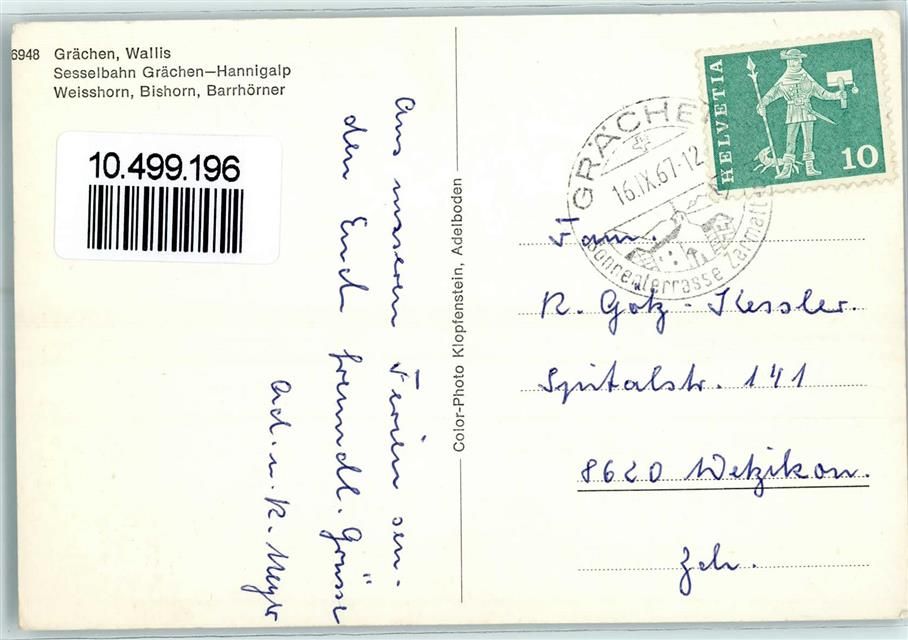 6948 Grächen, Wallis
Sesselbahn Grächen—Hannigalp
Weisshorn, Bishorn, Barrhörner
10.499.196
Aus unseren Ferien sen-
den Euch freundl. Grüsse
Ad. u. R. Meyer
Color-Photo Klopfenstein, Adelboden
HELVETIA
10
GRÄCHEN
16.IX.67-12
Sonnenterrasse Zermatter
Fam.
R. Götz-Kessler.
Spitalstr. 141
8620 Wetzikon.
Zch.